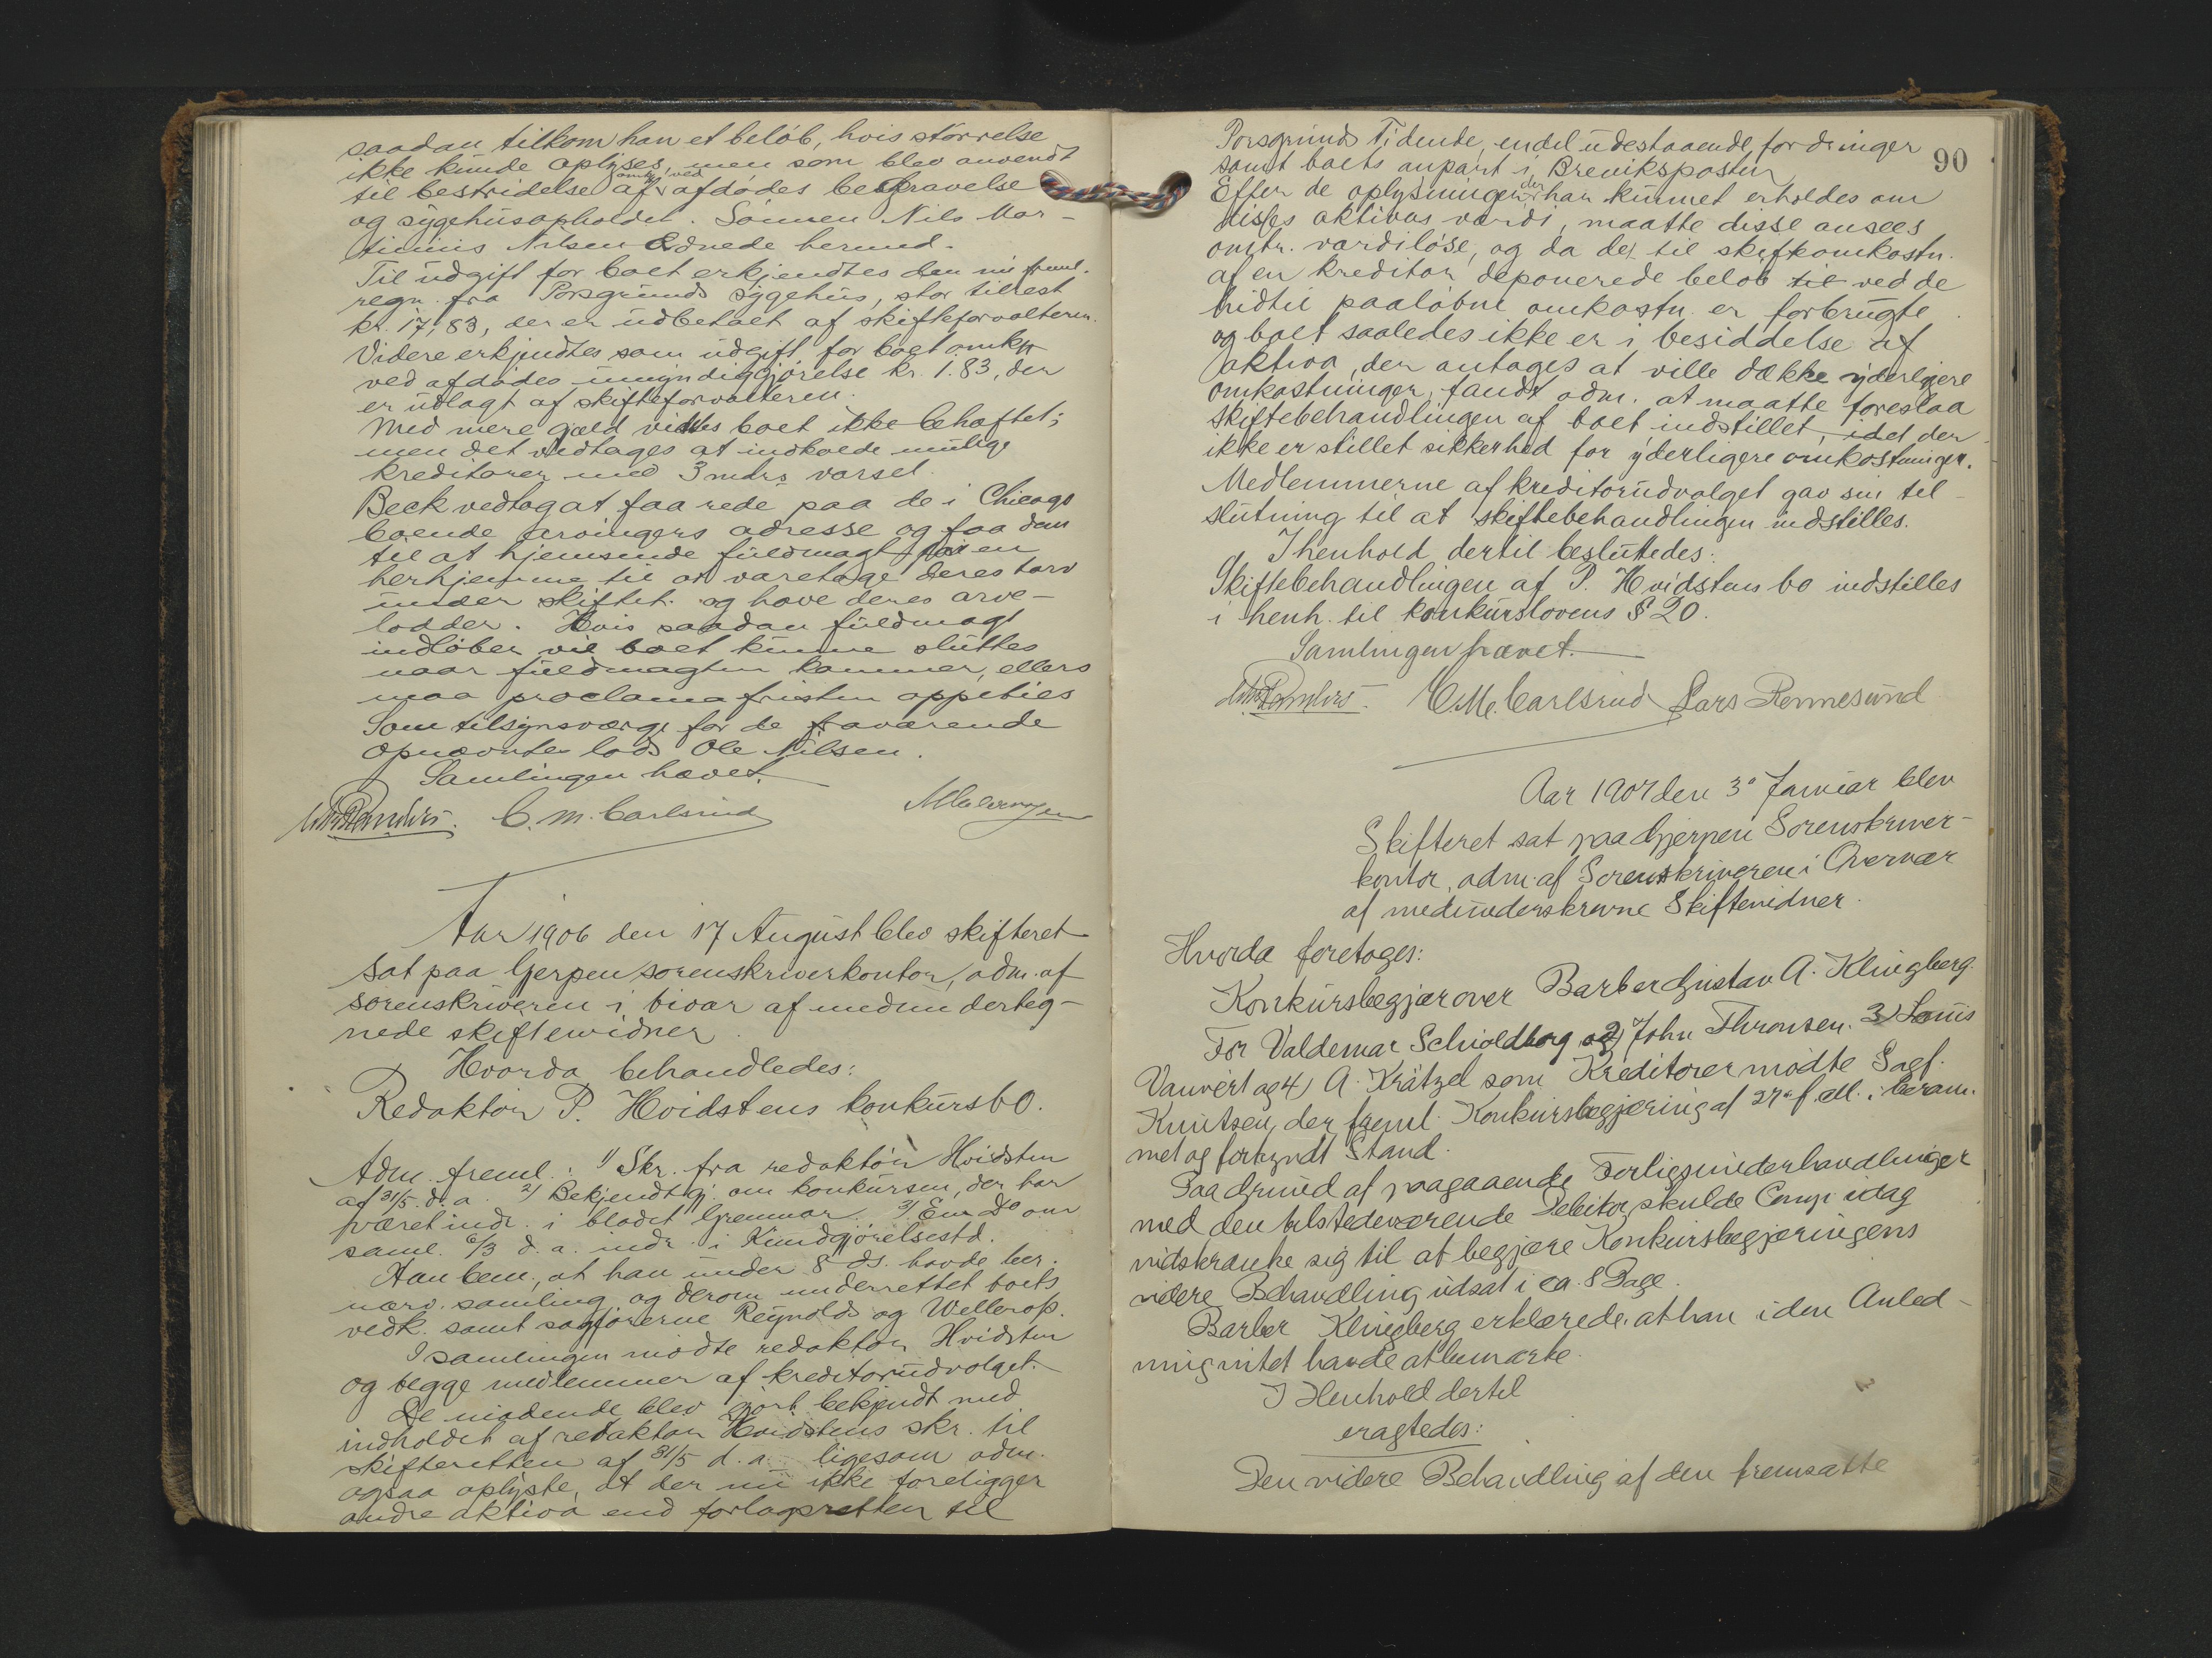 saadan tilkom han et beløb, hvis størrelse
ikke kunde oplyses, men som blev anvendt
til bestridelse af omk. ved afdødes begravelse
og sygehusopholdet. Sønnen Nils Mar-
tinius Nilsen ordnede hermed.
Til udgift for boet erkjendtes den nu freml.
regn. fra Porsgrunds sygehus, stor tilrest
kr. 17,83, der er udbetalt af skifteforvalteren.
Videre erkjendtes som udgift for boet omk.
ved afdødes umyndiggjørelse kr. 1.83, der
er udlagt af skifteforvalteren.
Med mere gjæld vides boet ikke behæftet;
men det vedtages at indkalde mulige
kreditorer med 3 mdrs varsel.
Beck vedtog at faa rede paa de i Chicago
boende arvingers adresse og faa dem
til at hjemsende fuldmagt for en
herhjemme til at varetage deres tarv
under skiftet og hæve deres arve-
lodder. Hvis saadan fuldmagt
indløber vil boet kunne sluttes
naar fuldmagten kommer, ellers
maa proclamafristen oppebies
Som tilsynsværge for de fraværende
opnævntes lods Ole Nilsen.
Samlingen hævet.
C. M. Carlsrud
Aar 1906 den 17 August blev skifteret
sat paa Gjerpen sorenskriverkontor, adm. af
sorenskriveren i bivær af medunderteg-
nede skiftevidner.
Hvorda behandledes:
Redaktør P. Hvidstens konkursbo.
Adm. freml.: 1) Skr. fra redaktør Hvidsten
af 31/5 d. a. 2) Bekjendtgj. om konkursen, der har
været indr. i bladet Grenmar 3) En Do om
saml. 6/3 d. a. indr. i Kundgjørelsestd.
Han bem., at han under 8 ds. havde ber.
nærv. samling og derom underrettet boets
vedk. samt sagførerne Reynolds og Wellerop.
I samlingen mødte redaktør Hvidsten
og begge medlemmer af kreditorudvalget.
De mødende blev gjort bekjendt med
indholdet af redaktør Hvidstens skr. til
skifteretten af 31/5 d. a. ligesom adm.
ogsaa oplyste, at der nu ikke foreligger
andre aktiva end forlagsretten til
90
Porsgrunds Tidende, endel udestaaende fordringer
samt boets anpart i Breviksposten
Efter de oplysninger der har kunnet erholdes om
disses aktivas værdi, maatte disse ansees
omtr. værdiløse, og da det til skifteomkostn.
af en kreditor deponerede beløb til ved de
hidtil paaløbne omkostn. er forbrugte
og boet saaledes ikke er i besiddelse af
aktiva, der antages at ville dække yderligere
omkostninger, fandt adm. at maatte foreslaa
skiftebehandlingen af boet indstillet, idet der
ikke er stillet sikkerhed for yderligere omkostninger.
Medlemmerne af kreditorudvalget gav sin til-
slutning til at skiftebehandlingen indstilles.
I henhold dertil besluttedes:
Skiftebehandlingen af P. Hvidstens bo indstilles
i henh. til konkurslovens § 20.
Samlingen hævet.
C. M. Carlsrud Lars Rønnesund
Aar 1907 den 3die Januar blev
Skifteret sat paa Gjerpen Sorenskriver-
kontor, adm. af Sorenskriveren i Overvær
af medunderskrevne Skiftevidner.
Hvorda foretoges:
Konkursbegjær over Barber Gustav A. Klingberg.
For Valdemar Schioldborg og 2) John Thronsen. 3) Louis
Vanvert og 4) A. Krätzel som Kreditorer mødte Sagf.
Knutsen, der freml. Konkursbegjæring af 27de f. M. i beram-
met og forkyndt Stand.
Paa Grund af paagaaende Forligsunderhandlinger
med den tilstedeværende Debitor, skulde Comp. idag
indskrænke sig til at begjære Konkursbegjæringens
videre Behandling udsat i ca. 8 Dage.
Barber Klingberg erklærede, at han i den Anled-
ning intet havde at bemærke.
I Henhold dertil
eragtedes:
Den videre Behandling af den fremsatte